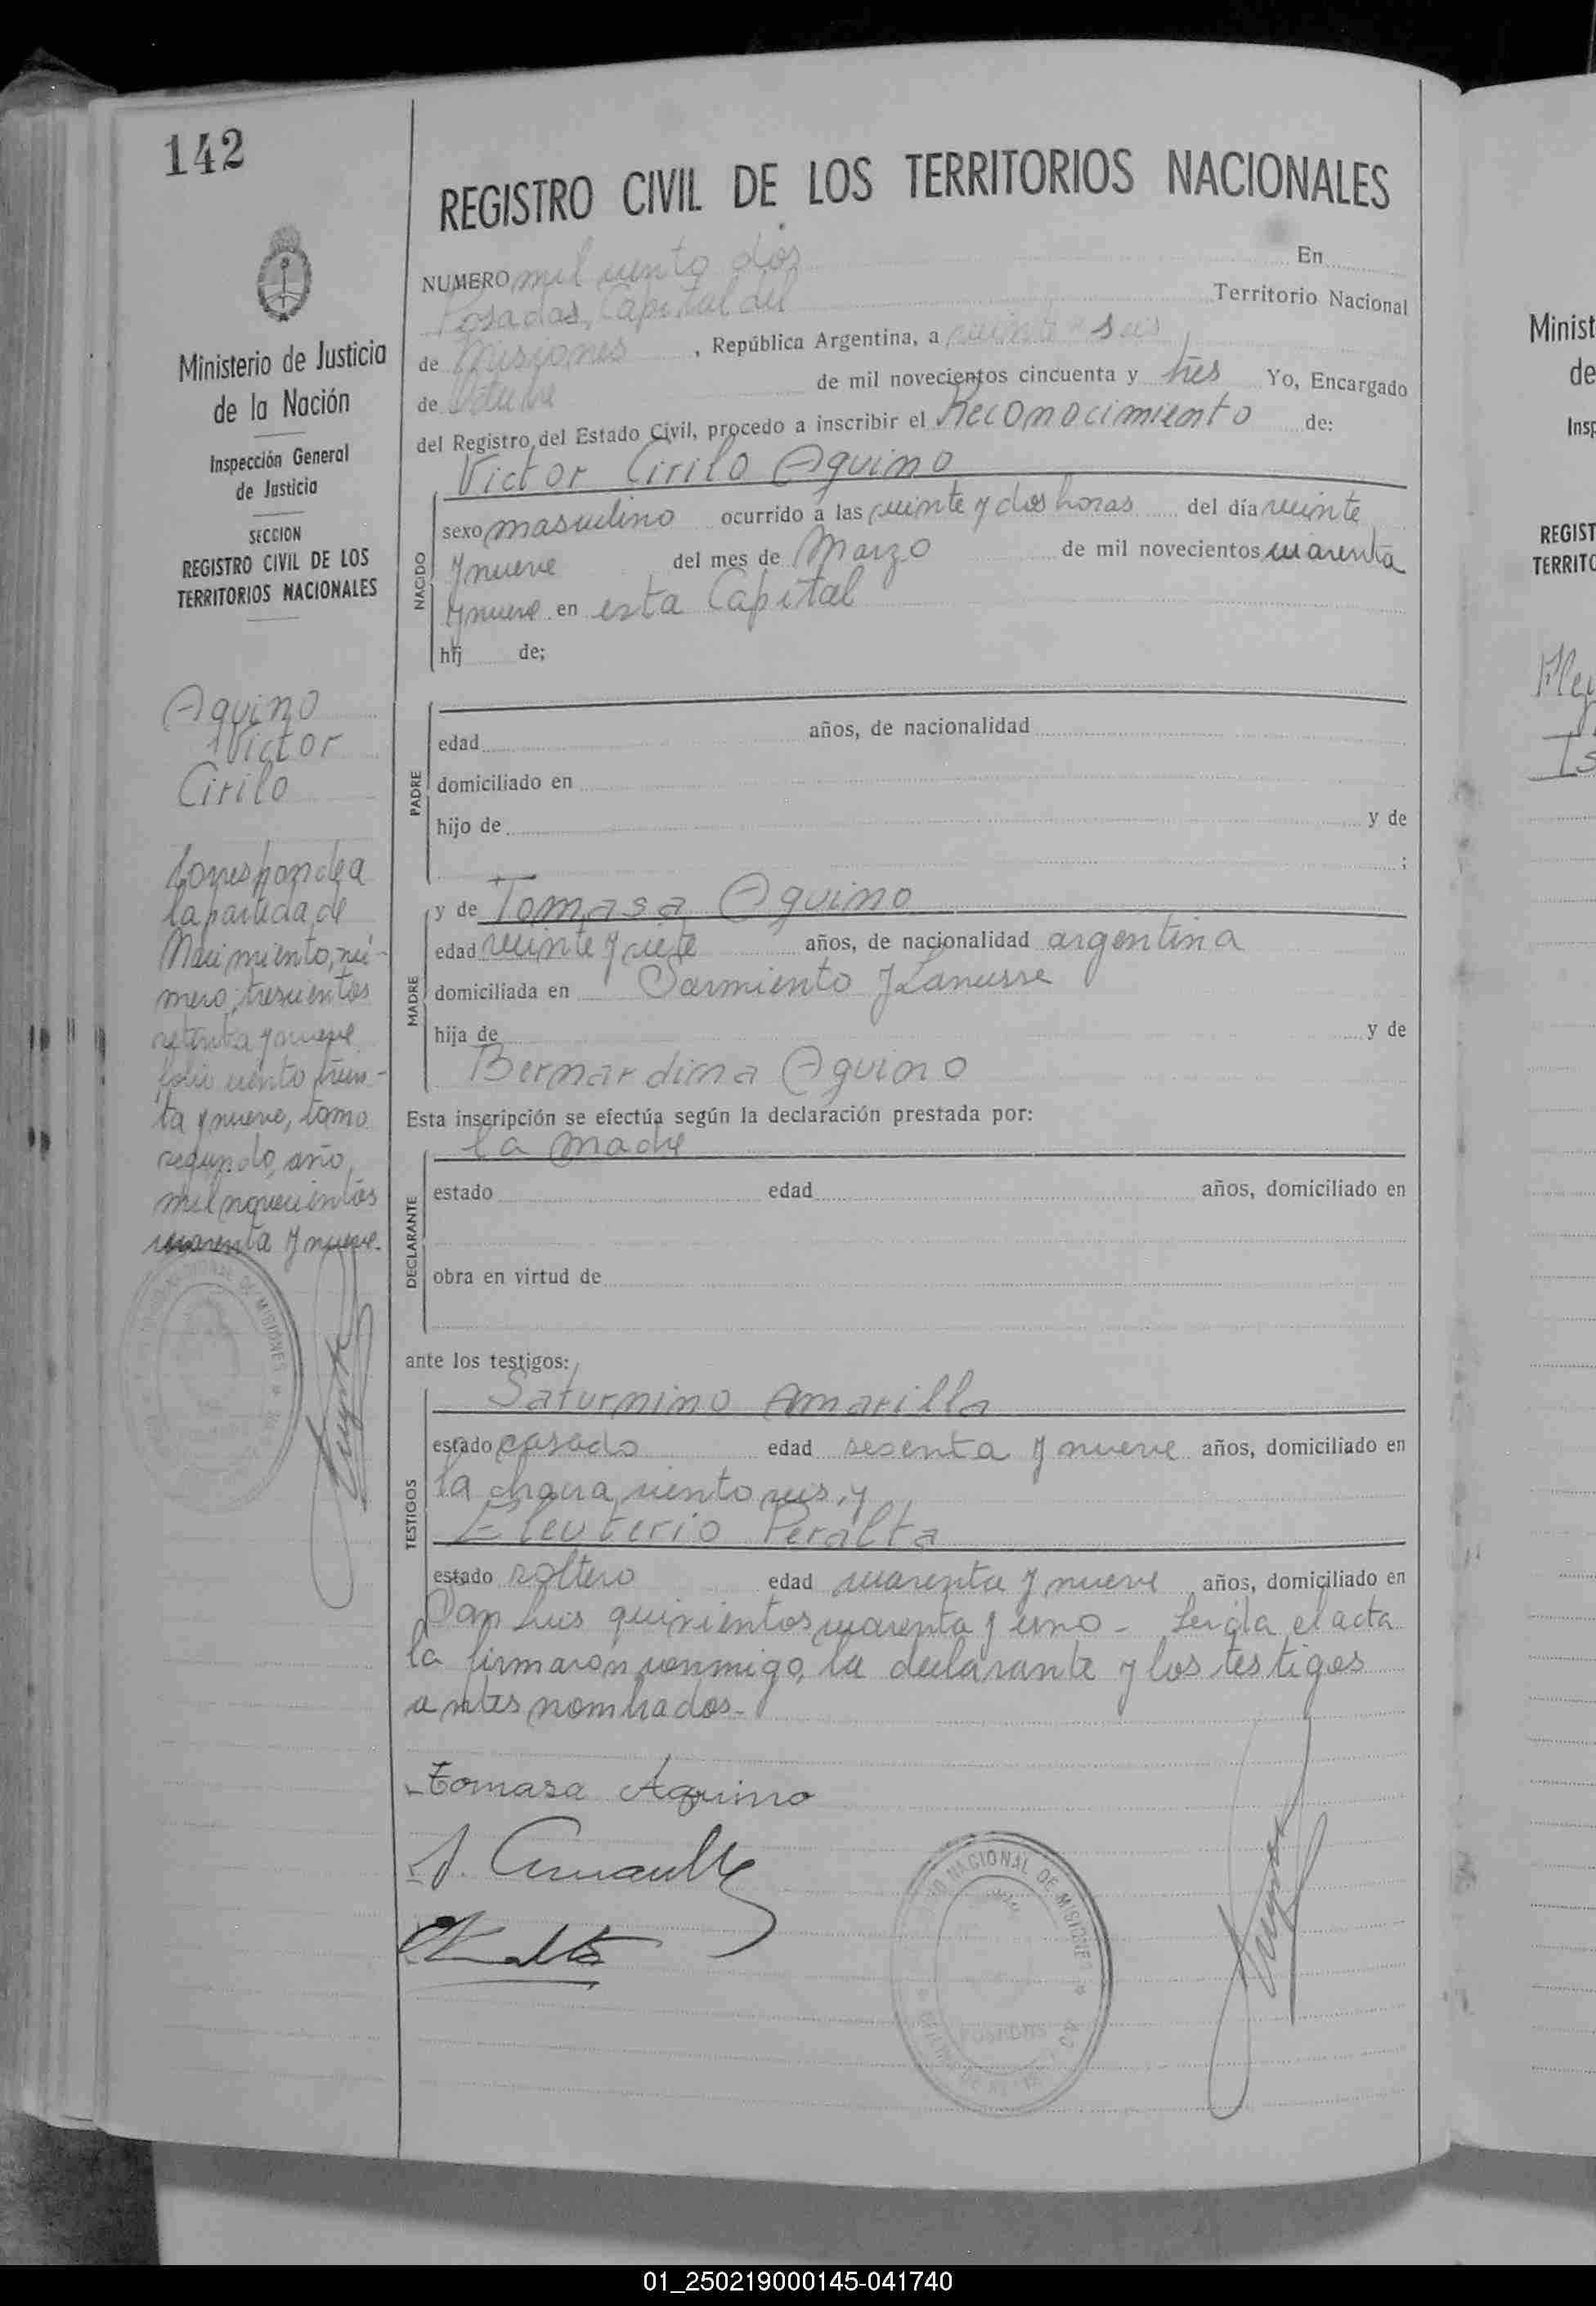 142
REGISTRO CIVIL DE LOS TERRITORIOS NACIONALES
Ministerio de Justicia
de la Nación
Inspección General
de Justicia
SECCION
REGISTRO CIVIL DE LOS
TERRITORIOS NACIONALES
Aquino
Victor
Cirilo
Corresponde a
la partida de
Nacimiento, nú-
mero, trescientos
setenta y nueve
folio ciento trein-
ta y nueve, tomo
segundo, año
mil novecientos
cuarenta y nueve.
NUMERO mil ciento dos En
Posadas, Capital del Territorio Nacional
de Misiones, República Argentina, a veinte seis
de Octubre de mil novecientos cincuenta y tres Yo, Encargado
del Registro del Estado Civil, procedo a inscribir el Reconocimiento de:
Victor Cirilo Aquino
NACIDO
sexo masculino ocurrido a las veinte y dos horas del día veinte
y nueve del mes de Marzo de mil novecientos cuarenta
y nueve en esta Capital
hij de;
PADRE
edad años, de nacionalidad
domiciliado en
hijo de y de
;
MADRE
y de Tomasa Aquino
edad veinte y siete años, de nacionalidad argentina
domiciliada en Sarmiento y Lanusse
hija de y de
Bernardina Aquino
Esta inscripción se efectúa según la declaración prestada por:
la madre
DECLARANTE
estado edad años, domiciliado en
obra en virtud de
ante los testigos:
TESTIGOS
Saturnino Amarilla
estado casado edad sesenta y nueve años, domiciliado en
la chacra ciento seis, y
Eleuterio Peralta
estado soltero edad cuarenta y nueve años, domiciliado en
San Luis quinientos cuarenta y uno - Leida el acta
la firmaron conmigo, la declarante y los testigos
antes nombrados.-
Tomasa Aquino
S. Amarilla
NACIONAL DE MISIONES
POSADAS
Minist
de
Insp
REGIST
TERRITO
01_250219000145-041740